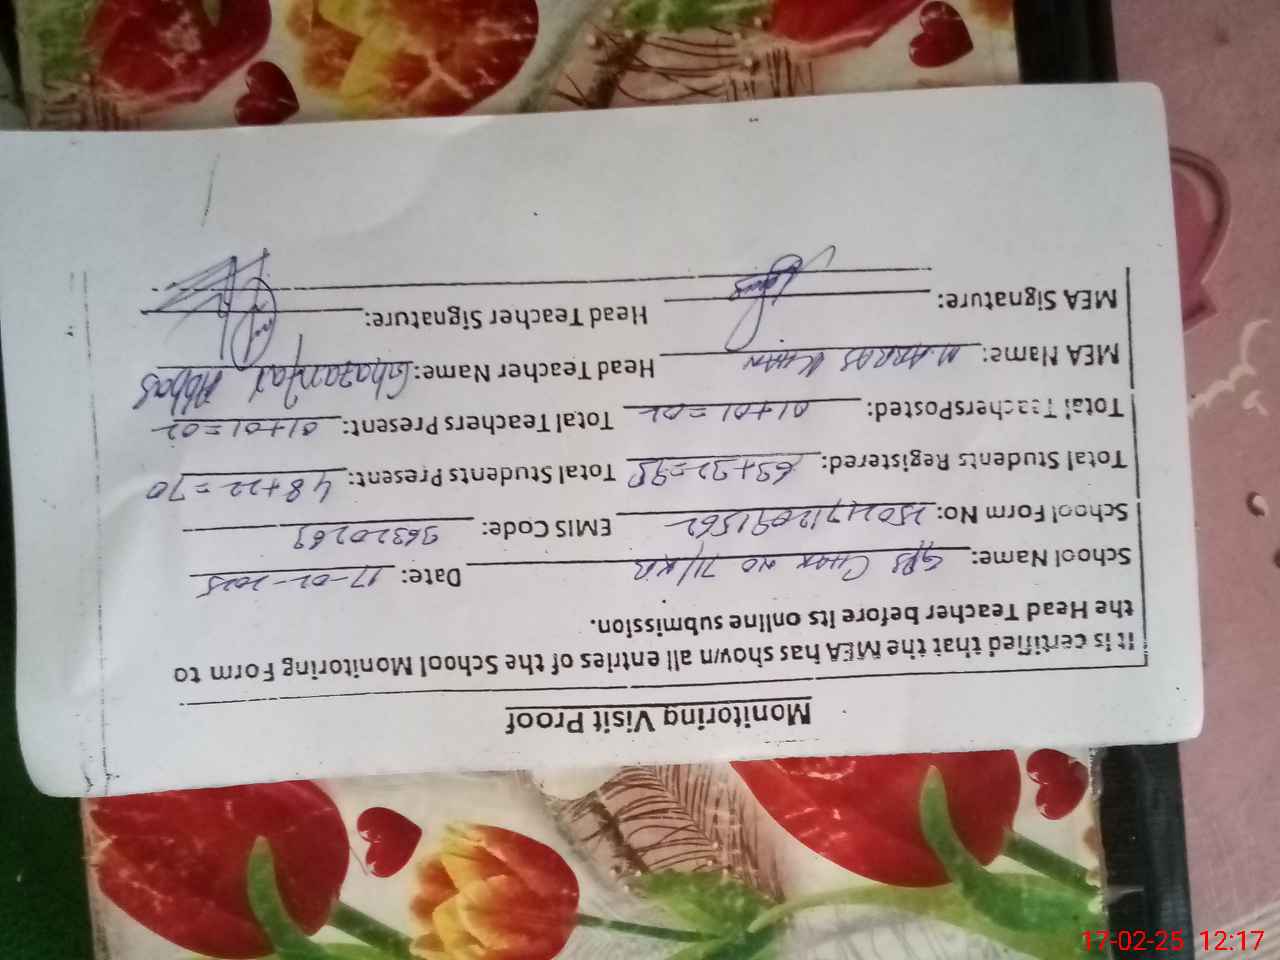 Monitoring Visit Proof
It is certified that the MEA has shown all entries of the School Monitoring Form to
the Head Teacher before its online submission.
School Name: GPS CHAK NO 71/KB Date: 17-02-2025
School Form No: EMIS Code: 36320269
Total Students Registered: Total Students Present: 48+22=70
Total TeachersPosted: 01+01=02 Total Teachers Present: 01+01=02
MEA Name: M. ABBAS KHAN Head Teacher Name: Ghazanfar Abbas
MEA Signature: Head Teacher Signature:
17-02-25 12:17